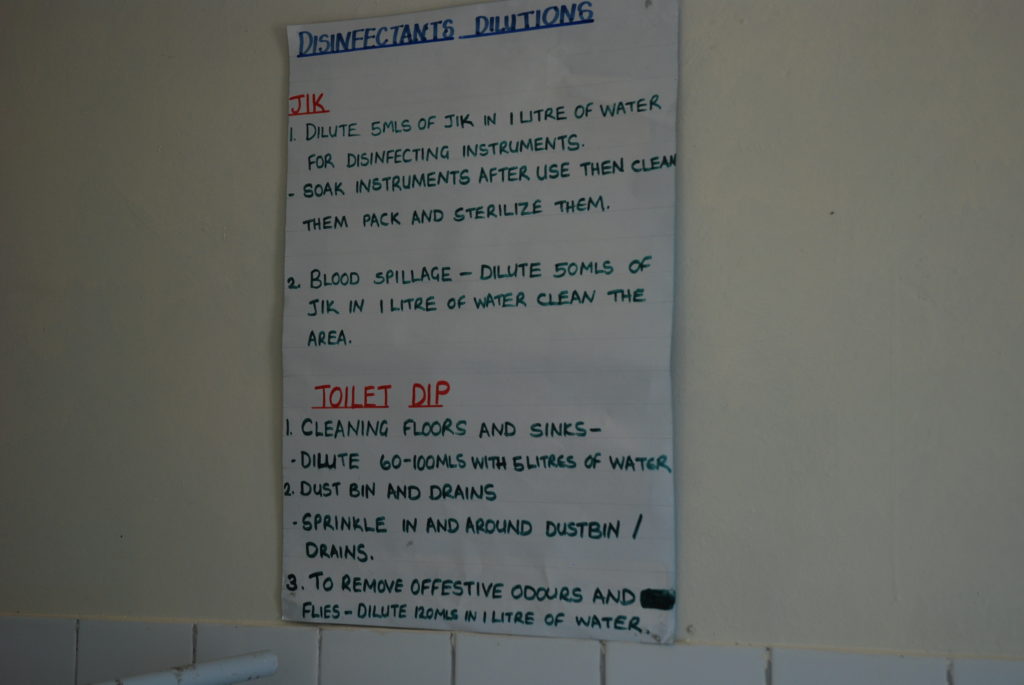 DISINFECTANTS DILUTIONS
JIK
1. DILUTE 5MLS OF JIK IN 1 LITRE OF WATER
FOR DISINFECTING INSTRUMENTS.
- SOAK INSTRUMENTS AFTER USE THEN CLEAN
THEM PACK AND STERILIZE THEM.
2. BLOOD SPILLAGE - DILUTE 50MLS OF
JIK IN 1 LITRE OF WATER CLEAN THE
AREA.
TOILET DIP
1. CLEANING FLOORS AND SINKS-
- DILUTE 60-100MLS WITH 5 LITRES OF WATER
2. DUST BIN AND DRAINS
- SPRINKLE IN AND AROUND DUSTBIN /
DRAINS.
3. TO REMOVE OFFESTIVE ODOURS AND
FLIES - DILUTE 120MLS IN 1 LITRE OF WATER.